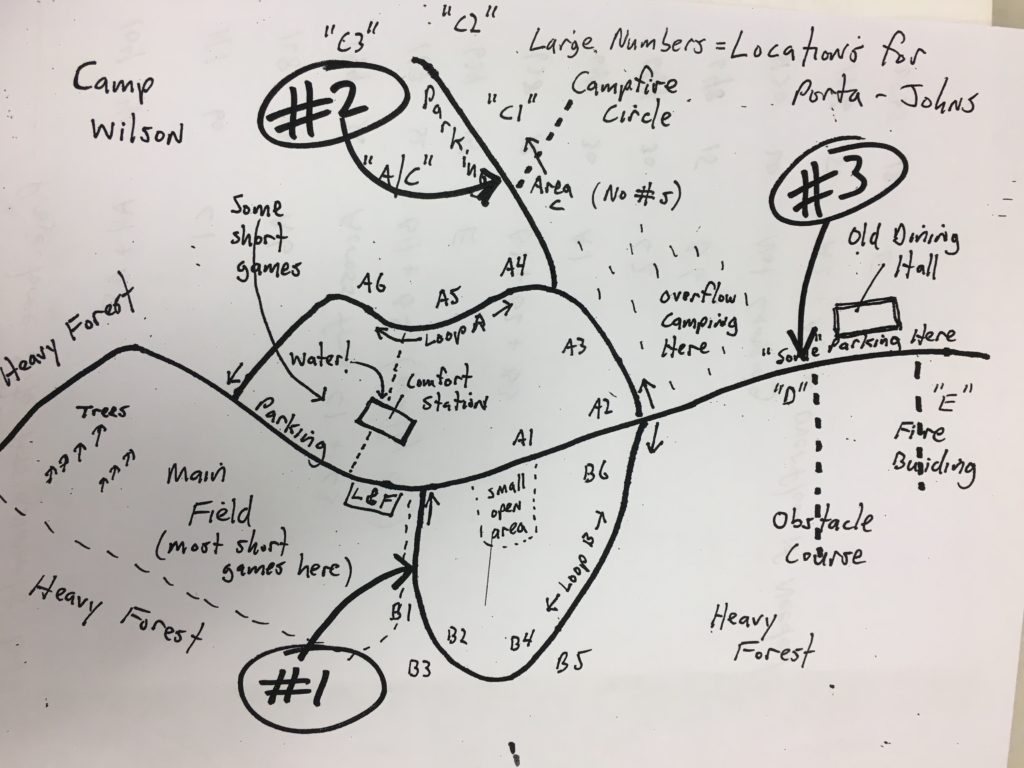 "C3"
"C2"
Large Numbers = Locations for
Porta-Johns
Camp
Wilson
#2
Parking
"C1"
Campfire
Circle
"A/C"
Area
C
(No #s)
#3
Some
short
games
Old Dining
Hall
A6
A5
A4
Loop A
Overflow
Camping
Here
Heavy Forest
A3
"Some"
Parking
Here
Water!
Comfort
Station
"D"
"E"
Trees
Parking
A2
A1
Fire
Buiding
Main
Field
(most short
games here)
L&F
small
open
area
B6
Obstacle
Course
Loop B
Heavy Forest
B1
B2
B3
B4
B5
Heavy
Forest
#1